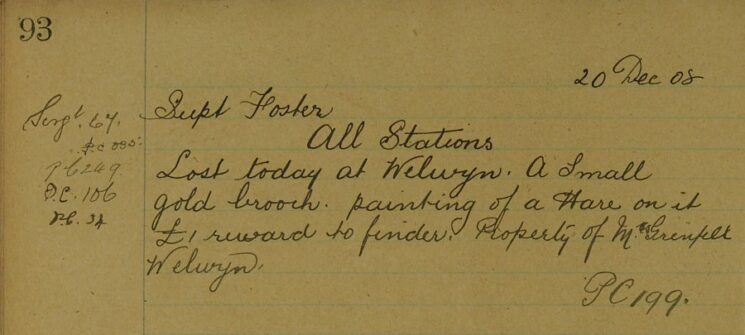 93
20 Dec 08
Supt Foster
All Stations
Sergt. 67.
P.C 035.
PC 249
P.C. 106
P.C. 34
Lost today at Welwyn. A Small
gold brooch. painting of a Hare on it
£1 reward to finder. Property of Mrs Grenfell
Welwyn.
PC 199.